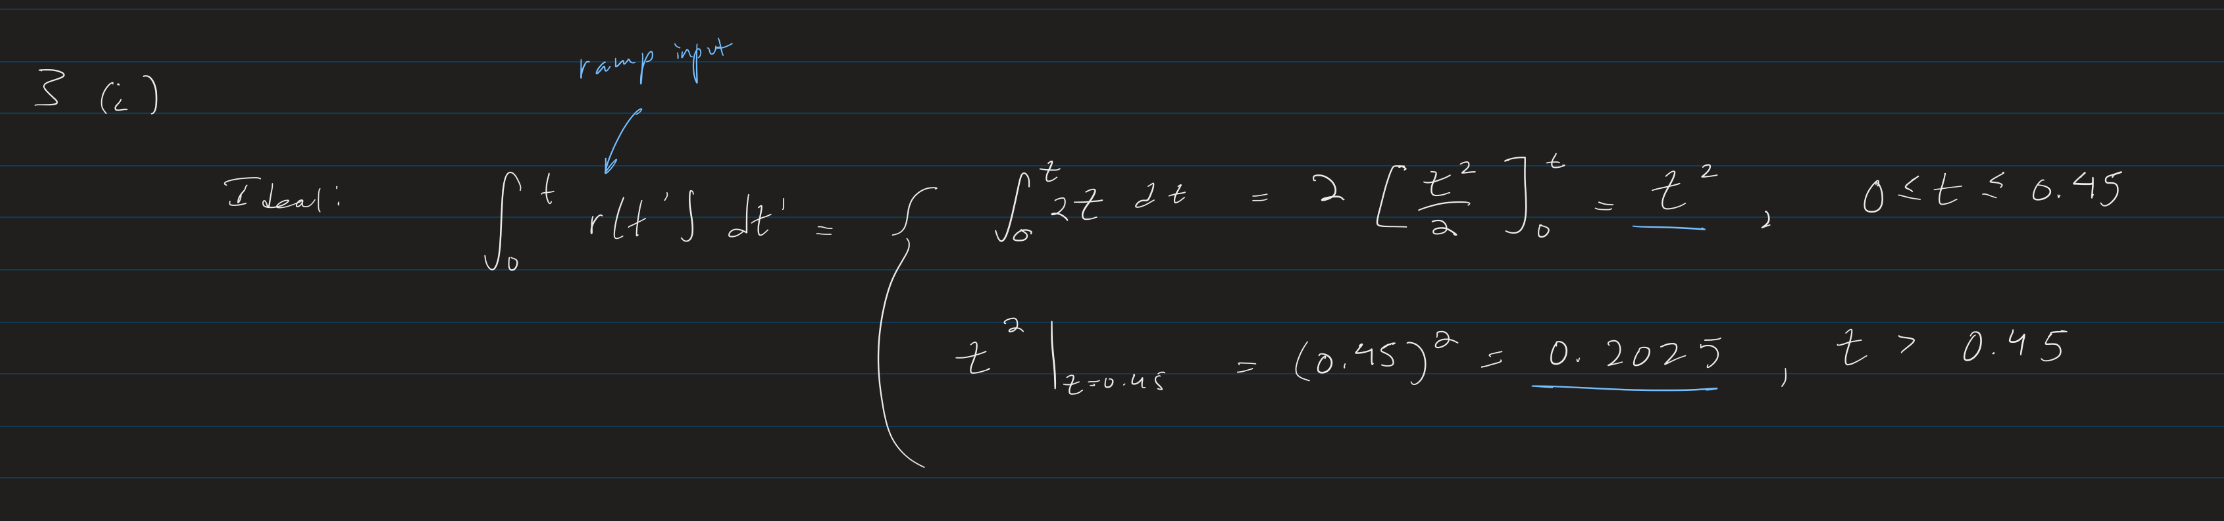 ramp input
3 (i)
Ideal: ∫₀ᵗ r(t') dt' = { ∫₀ᵗ 2t dt = 2 [t²/2]₀ᵗ = t² , 0 ≤ t ≤ 0.45
t² |t=0.45 = (0.45)² = 0.2025 , t > 0.45